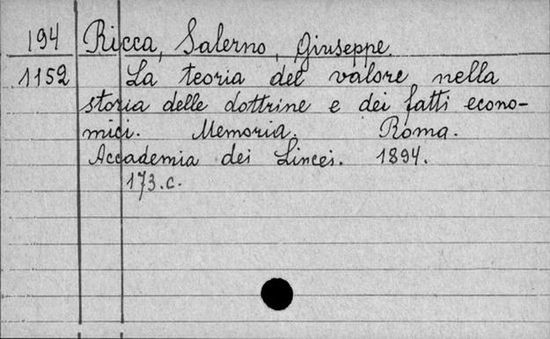 194 Ricca, Salerno, Giuseppe.
1152 La teoria del valore nella
storia delle dottrine e dei fatti econo-
mici. Memoria. Roma.
Accademia dei Lincei. 1894.
173.c.